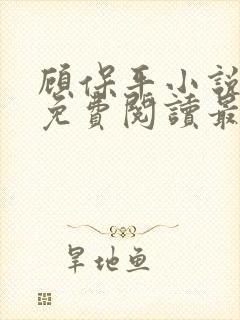 顾保平小說
免費閱讀最
旱地鱼